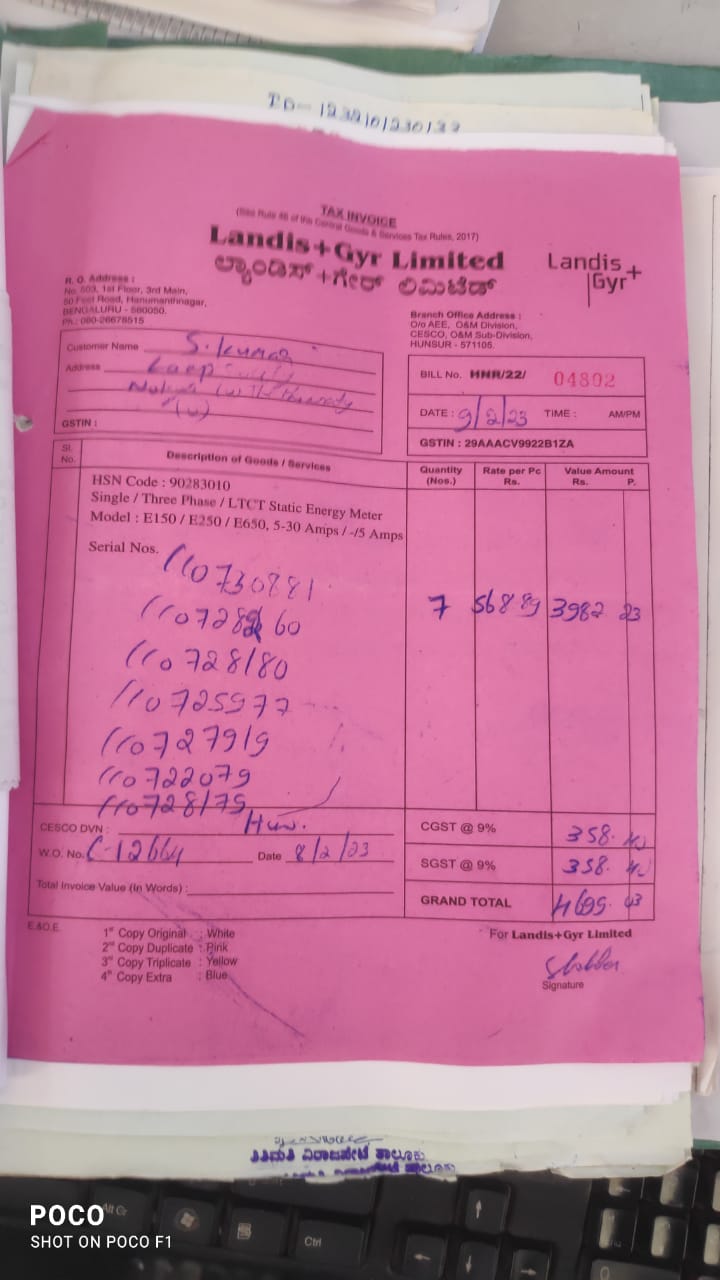 TAX INVOICE
(See Rule 46 of the Central Goods & Services Tax Rules, 2017)
Landis+Gyr Limited
ಲ್ಯಾಂಡಿಸ್+ಗೇರ್ ಲಿಮಿಟೆಡ್
Landis+
Gyr
R. O. Address :
No. 503, 1st Floor, 3rd Main,
50 Feet Road, Hanumanthnagar,
BENGALURU - 560050.
Ph.: 080-26678515
Branch Office Address :
O/o AEE, O&M Division,
CESCO, O&M Sub-Division,
HUNSUR - 571105.
Customer Name S. Kumar
Address
GSTIN :
BILL No. HNR/22/ 04802
DATE : 9/2/23 TIME : AM/PM
GSTIN : 29AAACV9922B1ZA
Sl. No. Description of Goods / Services Quantity (Nos.) Rate per Pc Rs. Value Amount Rs. P.
HSN Code : 90283010
Single / Three Phase / LTCT Static Energy Meter
Model : E150 / E250 / E650, 5-30 Amps / -/5 Amps
Serial Nos. 110730881
7 568 89 3982 23
110728180
110725977
110727919
110722079
110728175
CESCO DVN : Hun.
W.O. No. C-12664 Date 8/2/23
Total Invoice Value (In Words) :
CGST @ 9% 358. 40
SGST @ 9% 358. 40
GRAND TOTAL 4699. 03
E.&O.E.
1st Copy Original : White
2nd Copy Duplicate : Pink
3rd Copy Triplicate : Yellow
4th Copy Extra : Blue
For Landis+Gyr Limited
Signature
ವಿರಾಜಪೇಟೆ ತಾಲೂಕು
Alt Gr
Ctrl
POCO
SHOT ON POCO F1